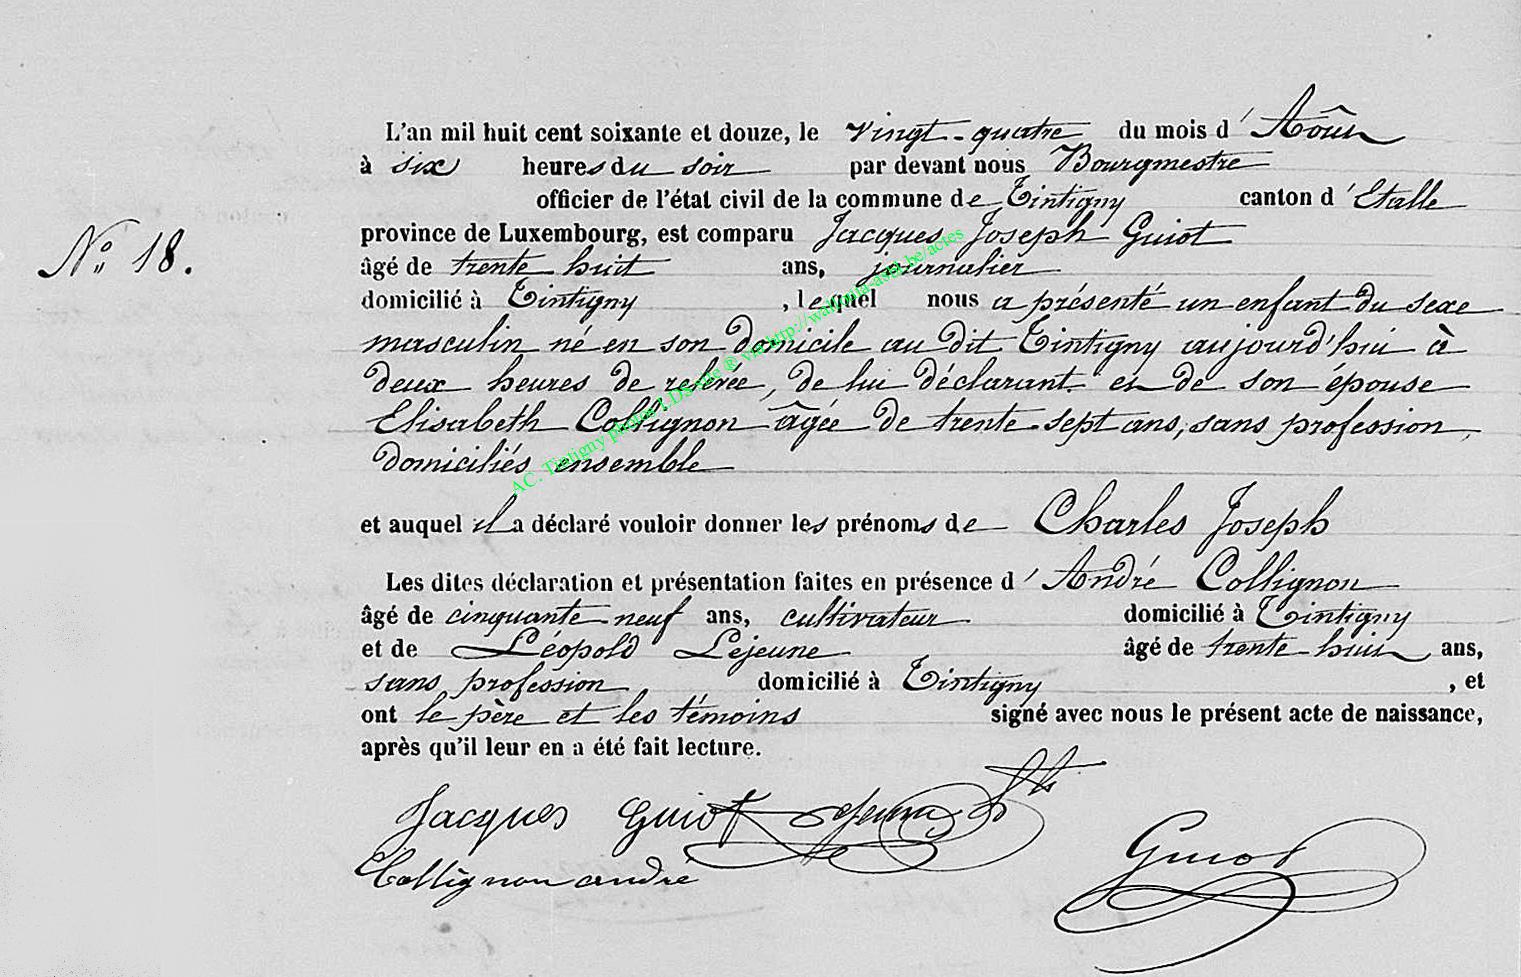 L'an mil huit cent soixante et douze, le vingt-quatre du mois d'Août
à six heures du soir par devant nous Bourgmestre
officier de l'état civil de la commune de Tintigny canton d'Etalle
province de Luxembourg, est comparu Jacques Joseph Guiot
N° 18.
âgé de trente huit ans, journalier
domicilié à Tintigny, lequel nous a présenté un enfant du sexe
masculin né en son domicile au dit Tintigny aujourd'hui à
deux heures de relevée, de lui déclarant et de son épouse
Elisabeth Collignon âgée de trente-sept ans, sans profession,
domiciliés ensemble
AC. Tintigny photos LDS site ® via http://wallonia-asbl.be/actes
et auquel il a déclaré vouloir donner les prénoms de Charles Joseph
Les dites déclaration et présentation faites en présence d'André Collignon
âgé de cinquante-neuf ans, cultivateur domicilié à Tintigny
et de Léopold Lejeune âgé de trente-huit ans,
sans profession domicilié à Tintigny, et
ont le père et les témoins signé avec nous le présent acte de naissance,
après qu'il leur en a été fait lecture.
Jacques Guiot Lejeune
Collignon andré
Guiot